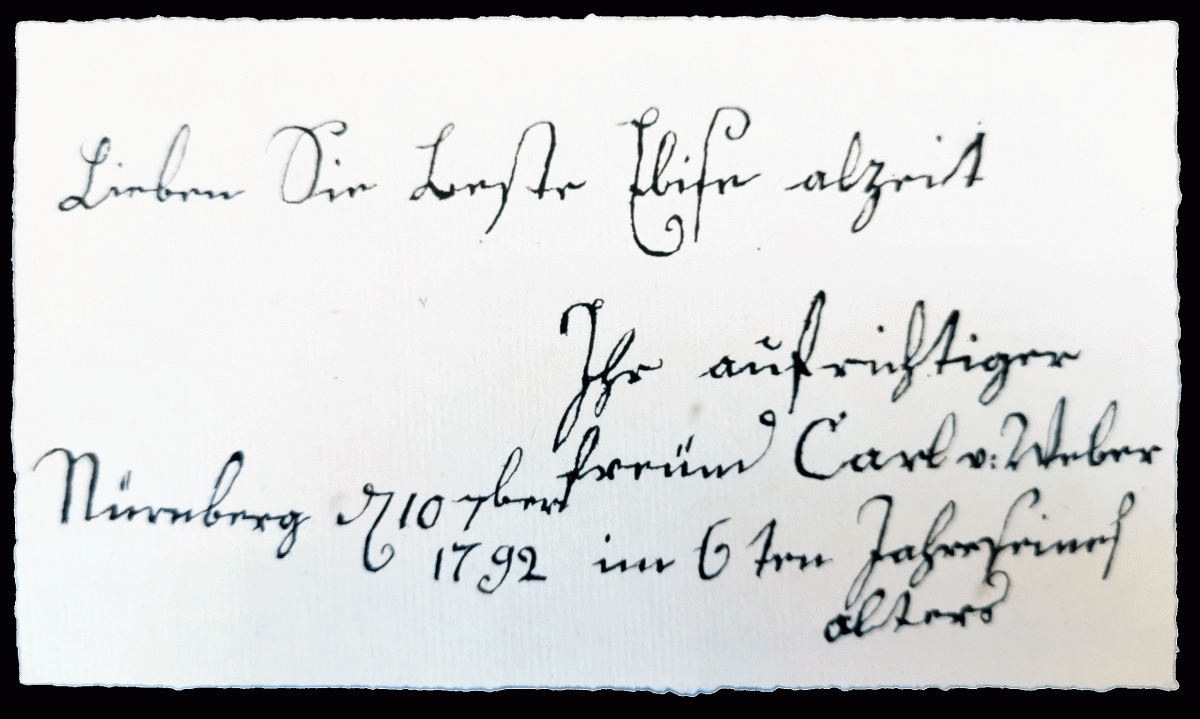 Lieben Sie Beste Elise alzeit
Ihr aufrichtiger
freünd Carl v: Weber
Nürnberg d 10 7bert
1792 im 6 ten Jahre seines
alters